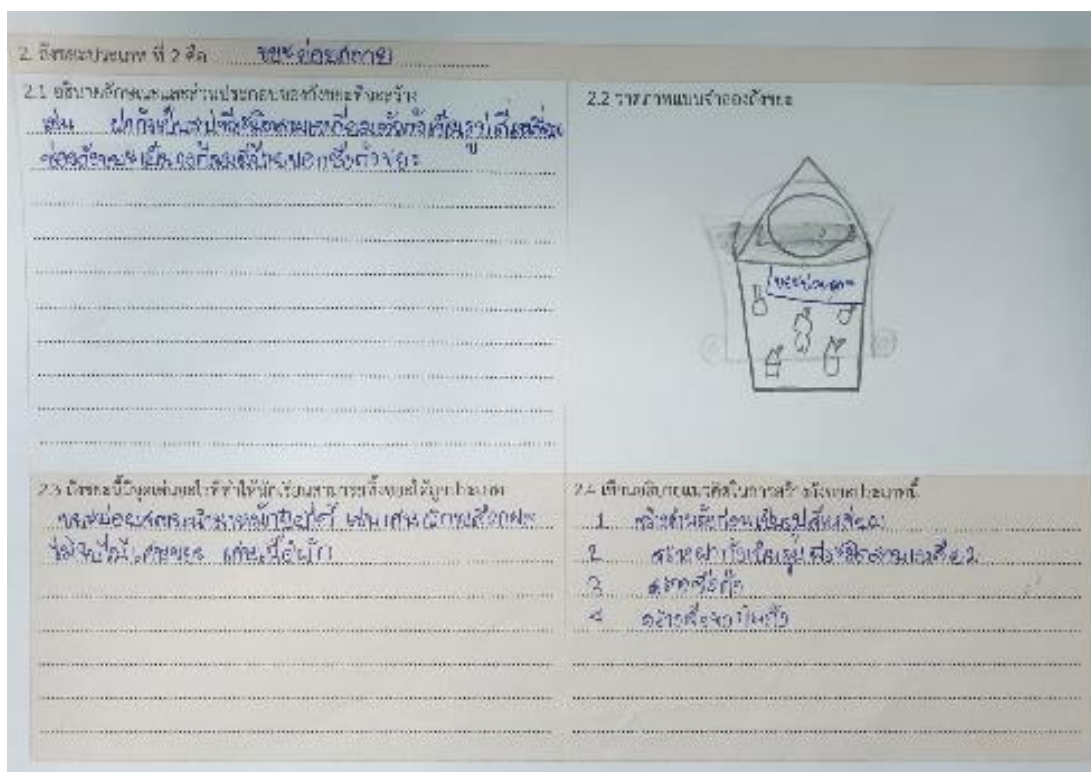 2. ถังขยะประเภท ที่ 2 คือ ขยะย่อยสลาย
2.1 อธิบายลักษณะและส่วนประกอบของถังขยะที่จะสร้าง
เช่น ฝาถังเป็นรูปพีระมิดสามเหลี่ยมตัวถังเป็นรูปสี่เหลี่ยม
ช่องถังขยะเป็นวงกลมมีป้ายบอกชื่อถังขยะ
2.2 วาดภาพแบบจำลองถังขยะ
ขยะย่อยสลาย
2.3 ถังขยะนี้มีจุดเด่นอะไรที่ทำให้นักเรียนสามารถทิ้งขยะได้ถูกประเภท
ขยะย่อยสลายนำมาหมักปุ๋ยได้ เช่น เศษ เปลือกผล
ไม้ ใบไม้ เศษ เศษเนื้อ ผัก
2.4 เขียนอธิบายแนวคิดในการสร้างถังขยะประเภทนี้
1 สร้างถังก่อนเป็นรูปสี่เหลี่ยม
2 สร้างฝาถังเป็นรูปพีระมิดสามเหลี่ยม
3 ถัง
4 สร้าง